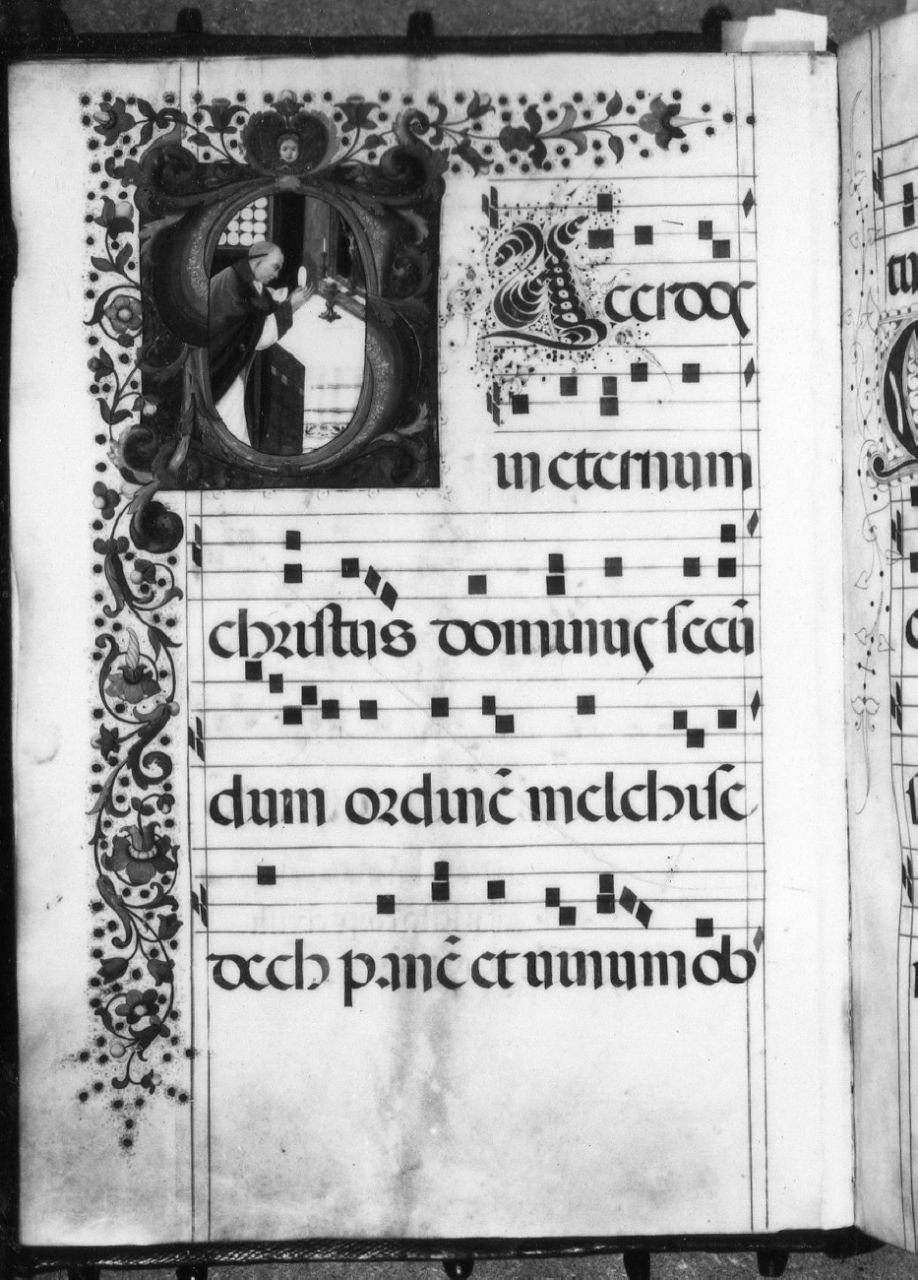 SAcerdos
in eternum
christus dominus secū
dum ordinē melchise
dech panē et uinum ob
tu